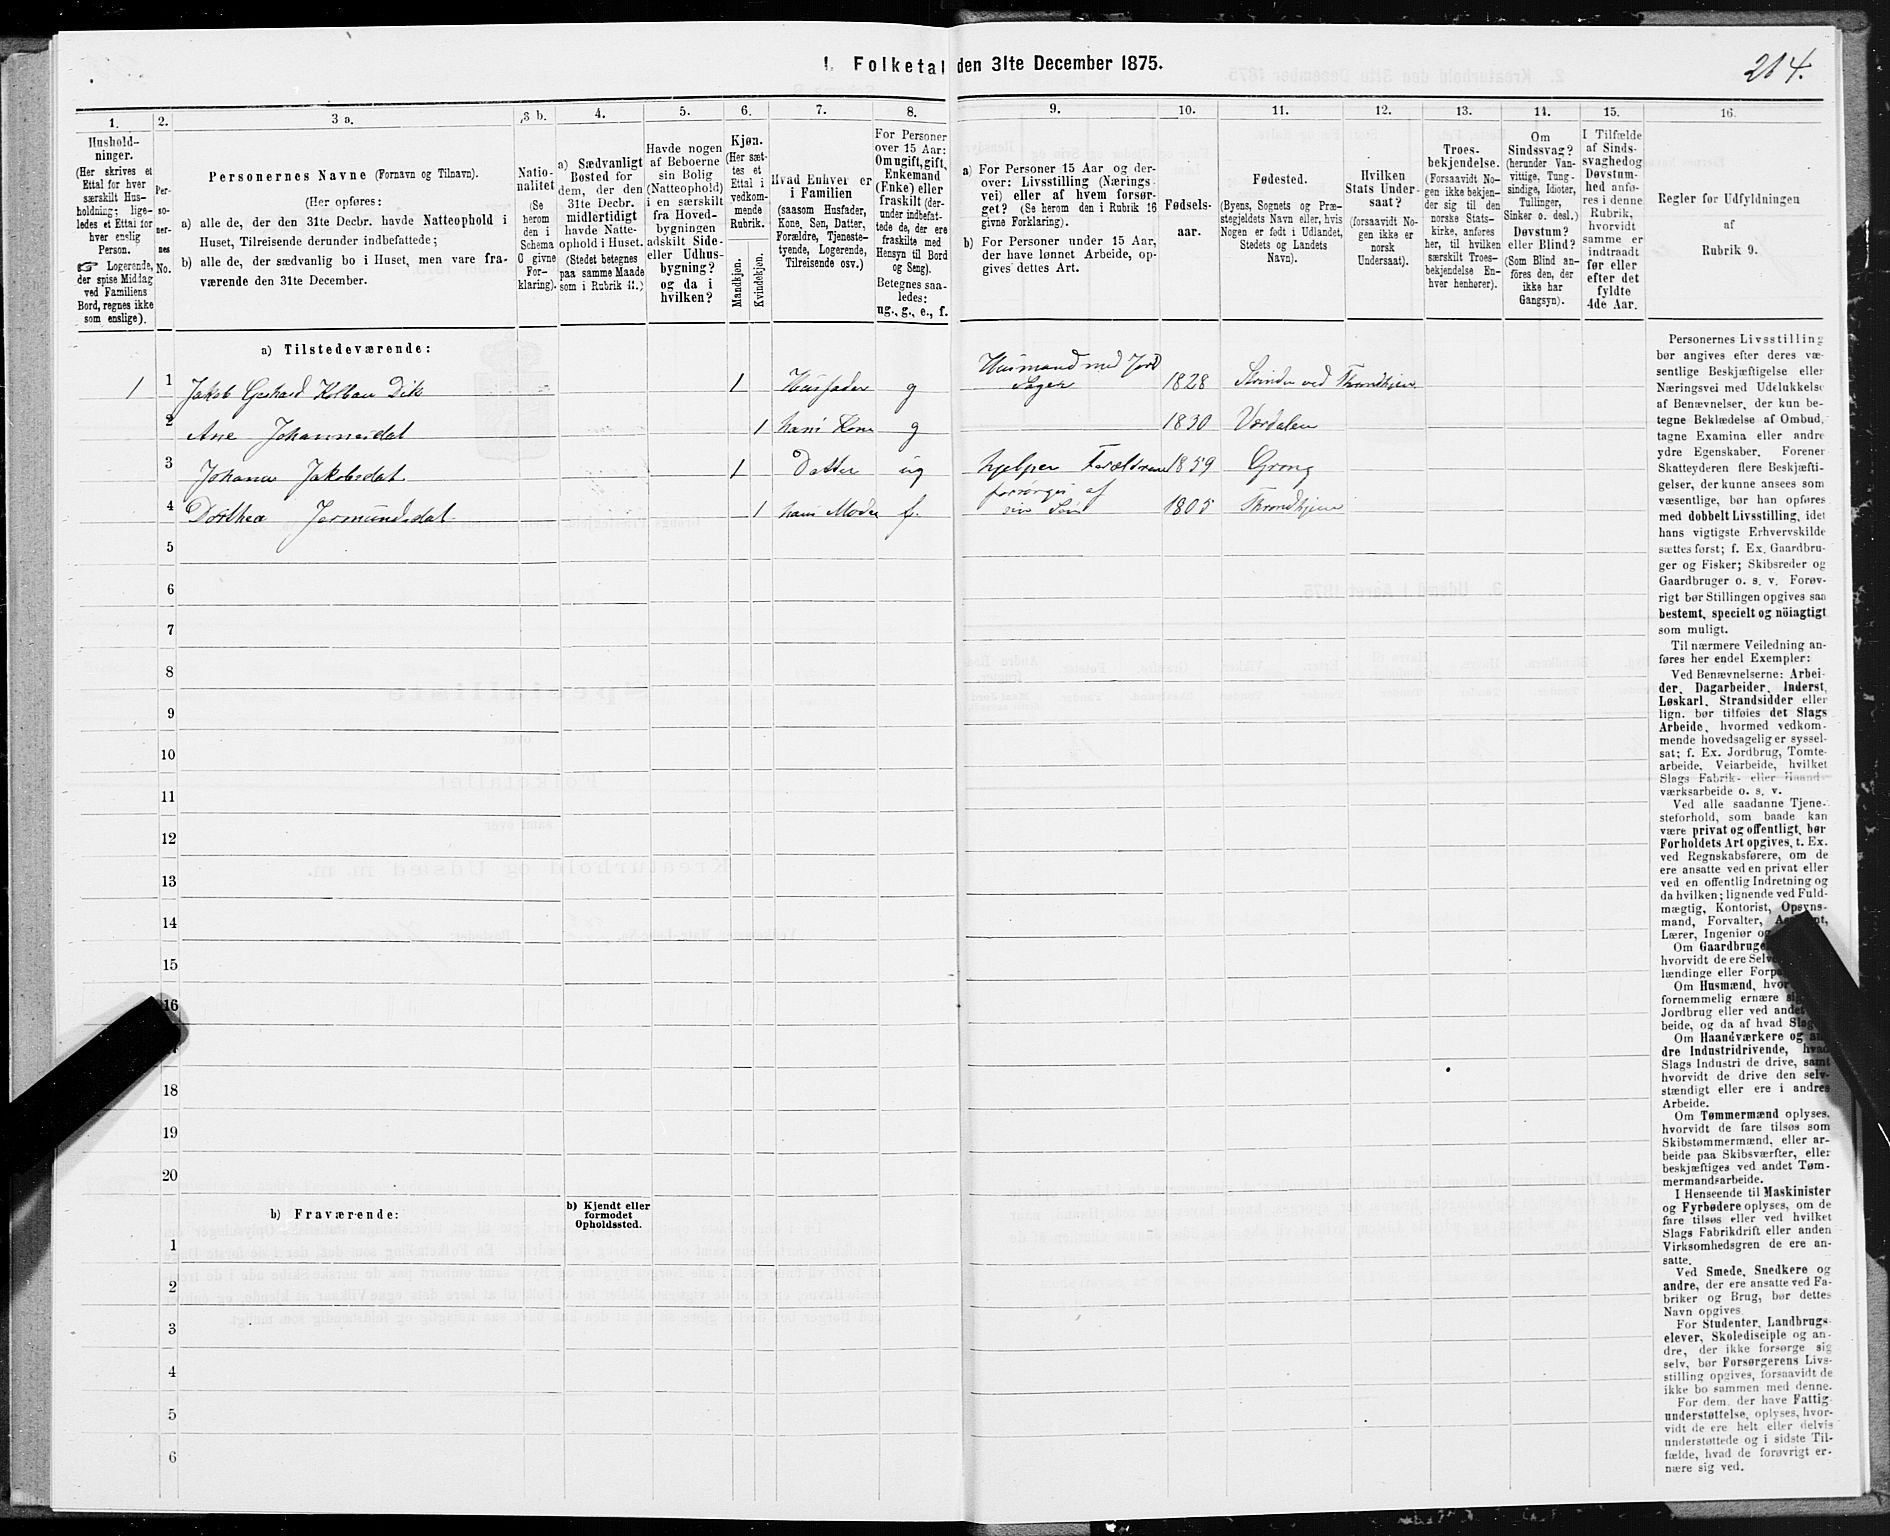 1. Folketal den 31te December 1875.
214.
1.
2.
3 a.
3 b.
4.
5.
6.
7.
8.
9.
10.
11.
12.
13.
14.
15.
16.
Hushold-
ninger.
(Her skrives et
Ettal for hver
særskilt Hus-
holdning; lige-
ledes et Ettal for
hver enslig
Person.
☞ Logerende,
der spise Middag
ved Familiens
Bord, regnes ikke
som enslige).
Per-
so-
ner-
nes
No.
Personernes Navne (Fornavn og Tilnavn).
(Her opføres:
a) alle de, der den 31te Decbr. havde Natteophold i
Huset, Tilreisende derunder indbefattede;
b) alle de, der sædvanlig bo i Huset, men vare fra-
værende den 31te December.
Natio-
nalitet
(Se
herom
den i
Schema
C givne
For-
klaring).
a) Sædvanligt
Bosted for
dem, der den
31te Decbr.
midlertidigt
havde Natte-
ophold i Huset.
(Stedet betegnes
paa samme Maade
som i Rubrik 11.)
Havde nogen
af Beboerne
sin Bolig
(Natteophold)
i en særskilt
fra Hoved-
bygningen
adskilt Side-
eller Udhus-
bygning?
og da i
hvilken?
Kjøn.
(Her sæt-
tes et
Ettal i
vedkom-
mende
Rubrik.
Mandkjøn.
Kvindekjøn.
Hvad Enhver er
i Familien
(saasom Husfader,
Kone, Søn, Datter,
Forældre, Tjeneste-
tyende, Logerende,
Tilreisende osv.)
For Personer
over 15 Aar:
Om ugift, gift,
Enkemand
(Enke) eller
fraskilt (der-
under indbefat-
tede de, der ere
fraskilte med
Hensyn til Bord
og Seng).
Betegnes saa-
ledes:
ug., g., e., f.
a) For Personer 15 Aar og der-
over: Livsstilling (Nærings-
vei) eller af hvem forsør-
get? (Se herom den i Rubrik 16
givne Forklaring).
b) For Personer under 15 Aar,
der have lønnet Arbeide, op-
gives dettes Art.
Fødsels-
aar.
Fødested.
(Byens, Sognets og Præ-
stegjeldets Navn eller, hvis
Nogen er født i Udlandet,
Stedets og Landets
Navn).
Hvilken
Stats Under-
saat?
(forsaavidt No-
gen ikke er
norsk
Undersaat).
Troes-
bekjendelse.
(Forsaavidt No-
gen ikke bekjen-
der sig til den
norske Stats-
kirke, anføres
her, til hvilken
særskilt Troes-
bekjendelse En-
hver henhører).
Om
Sindssvag?
(herunder Van-
vittige, Tung-
sindige, Idioter,
Tullinger,
Sinker o. desl.)
Døvstum?
eller Blind?
(Som Blind an-
føres den, der
ikke har
Gangsyn).
I Tilfælde
af Sinds-
svaghed og
Døvstum-
hed anfø-
res i denne
Rubrik,
hvorvidt
samme er
indtraadt
før eller
efter det
fyldte
4de Aar.
Regler for Udfyldningen
af
Rubrik 9.
a) Tilstedeværende:
1 1 Jakob Gerhard Dik 1 Husfader g Husmand med Jord 1828 Strinden ved Throndhjem
2 Ane Johannesdat 1 hans Kone g 1830 Værdalen
3 Johana Jakobsdat 1 Datter ug hjelper Forældrene 1859 Grong
4 Dorthea Jermundsdat 1 hans Moder f. forsørges af
sin Søn 1805 Throndhjem
5
6
7
8
9
10
11
12
13
14
15
16
18
19
20
b) Fraværende:
b) Kjendt eller
formodet
Opholdssted.
1
2
3
4
5
6
Personernes Livsstilling
bør angives efter deres væ-
sentlige Beskjæftigelse eller
Næringsvei med Udelukkelse
af Benævnelser, der kun be-
tegne Beklædelse af Ombud,
tagne Examina eller andre
ydre Egenskaber. Forener
Skatteyderen flere Beskjæfti-
gelser, der kunne ansees som
væsentlige, bør han opføres
med dobbelt Livsstilling, idet
hans vigtigste Erhvervskilde
sættes først; f. Ex. Gaardbru-
ger og Fisker; Skibsreder og
Gaardbruger o. s. v. Forøv-
rigt bør Stillingen opgives saa
bestemt, specielt og nöiagtigt
som muligt.
Til nærmere Veiledning an-
føres her endel Exempler:
Ved Benævnelserne: Arbei-
der, Dagarbeider, Inderst,
Løskarl, Strandsidder eller
lign. bør tilføies det Slags
Arbeide, hvormed vedkom-
mende hovedsagelig er syssel-
sat; f. Ex. Jordbrug, Tomte-
arbeide, Veiarbeide, hvilket
Slags Fabrik- eller Haand-
værksarbeide o. s. v.
Ved alle saadanne Tjene-
steforhold, som baade kan
være privat og offentligt, bør
Forholdets Art opgives, t. Ex.
ved Regnskabsførere, om de
ere ansatte ved en privat eller
ved en offentlig Indretning og
da hvilken; lignende ved Fuld-
mægtig, Kontorist, Opsyns-
mand, Forvalter,
Lærer, Ingeniør
Om
hvorvidt de ere
lændinge eller
Om Husmænd,
fornemmelig ernære
Jordbrug eller ved andet
beide, og da af hvad
Om Haandværkere og
dre Industridrivende, hvad
Slags Industri de drive, samt
hvorvidt de drive den selv-
stændigt eller ere i andres
Arbeide.
Om Tømmermænd oplyses,
hvorvidt de fare tilsøs som
Skibstømmermænd, eller ar-
beide paa Skibsværfter, eller
beskjæftiges ved andet Tøm-
mermandsarbeide.
I Henseende til Maskinister
og Fyrbødere oplyses, om de
fare tilsøs eller ved hvilket
Slags Fabrikdrift eller anden
Virksomhedsgren de ere an-
satte.
Ved Smede, Snedkere og
andre, der ere ansatte ved Fa-
briker og Brug, bør dettes
Navn opgives.
For Studenter, Landbrugs-
elever, Skoledisciple og an-
dre, der ikke forsørge sig
selv, bør Forsørgerens Livs-
stilling opgives, forsaavidt de
ikke bo sammen med denne.
For dem, der have Fattig-
understøttelse, oplyses, hvor-
vidt de ere helt eller delvis
understøttede og i sidste Til-
fælde, hvad de forøvrigt er-
nære sig ved.